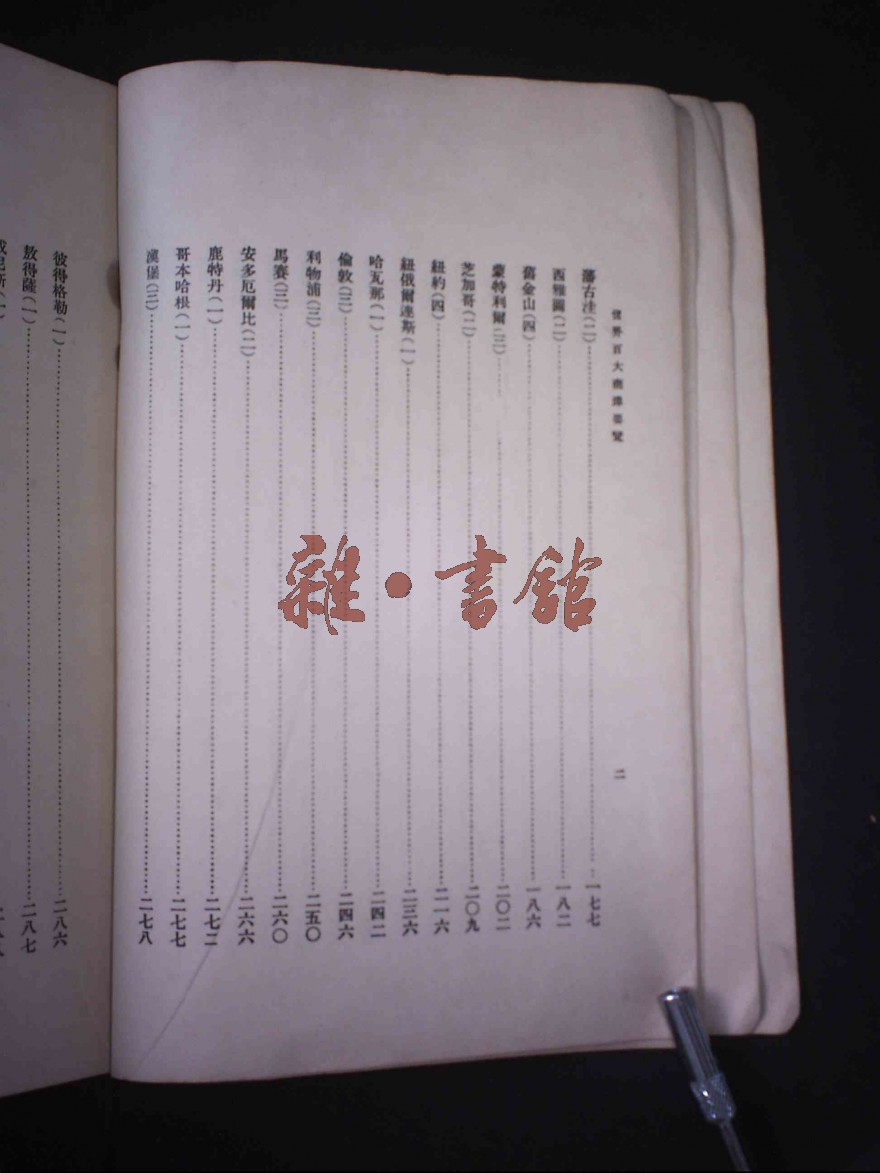 世界百大商埠要覽
二
藩古洼(二)……一七七
西雅圖(二)……一八二
舊金山(四)……一八六
蒙特利爾(三)……二〇二
芝加哥(二)……二〇九
紐約(四)……二一六
紐俄爾連斯(一)……二三六
哈瓦那(一)……二四二
倫敦(三)……二四六
利物浦(三)……二五〇
馬賽(三)……二六〇
安多厄爾比(二)……二六六
鹿特丹(一)……二七二
哥本哈根(一)……二七七
漢堡(三)……二七八
彼得格勒(一)……二八六
敖得薩(一)……二八七
雜·書館